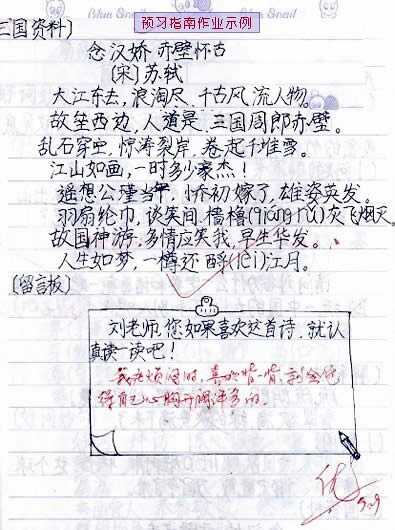 Blue Snail
预习指南作业示例
Blue Snail
三国资料〕
念汉娇 赤壁怀古
〔宋〕苏轼
大江东去,浪淘尽、千古风流人物。
故垒西边,人道是.三国周郎赤壁。
乱石穿空,惊涛裂岸,卷起千堆雪。
江山如画,一时多少豪杰!
遥想公瑾当年,小乔初嫁了,雄姿英发。
羽扇纶巾,谈笑间.樯橹(qiáng rǔ)灰飞烟灭。
故国神游,多情应笑我,早生华发。
人生如梦,一樽还酹(lèi)江月。
〔留言板〕
刘老师,您如果喜欢这首诗.就认
真读一读吧!
我在烦闷时,真的背一背,就会
得自己心胸开阔许多的。
优
5.9